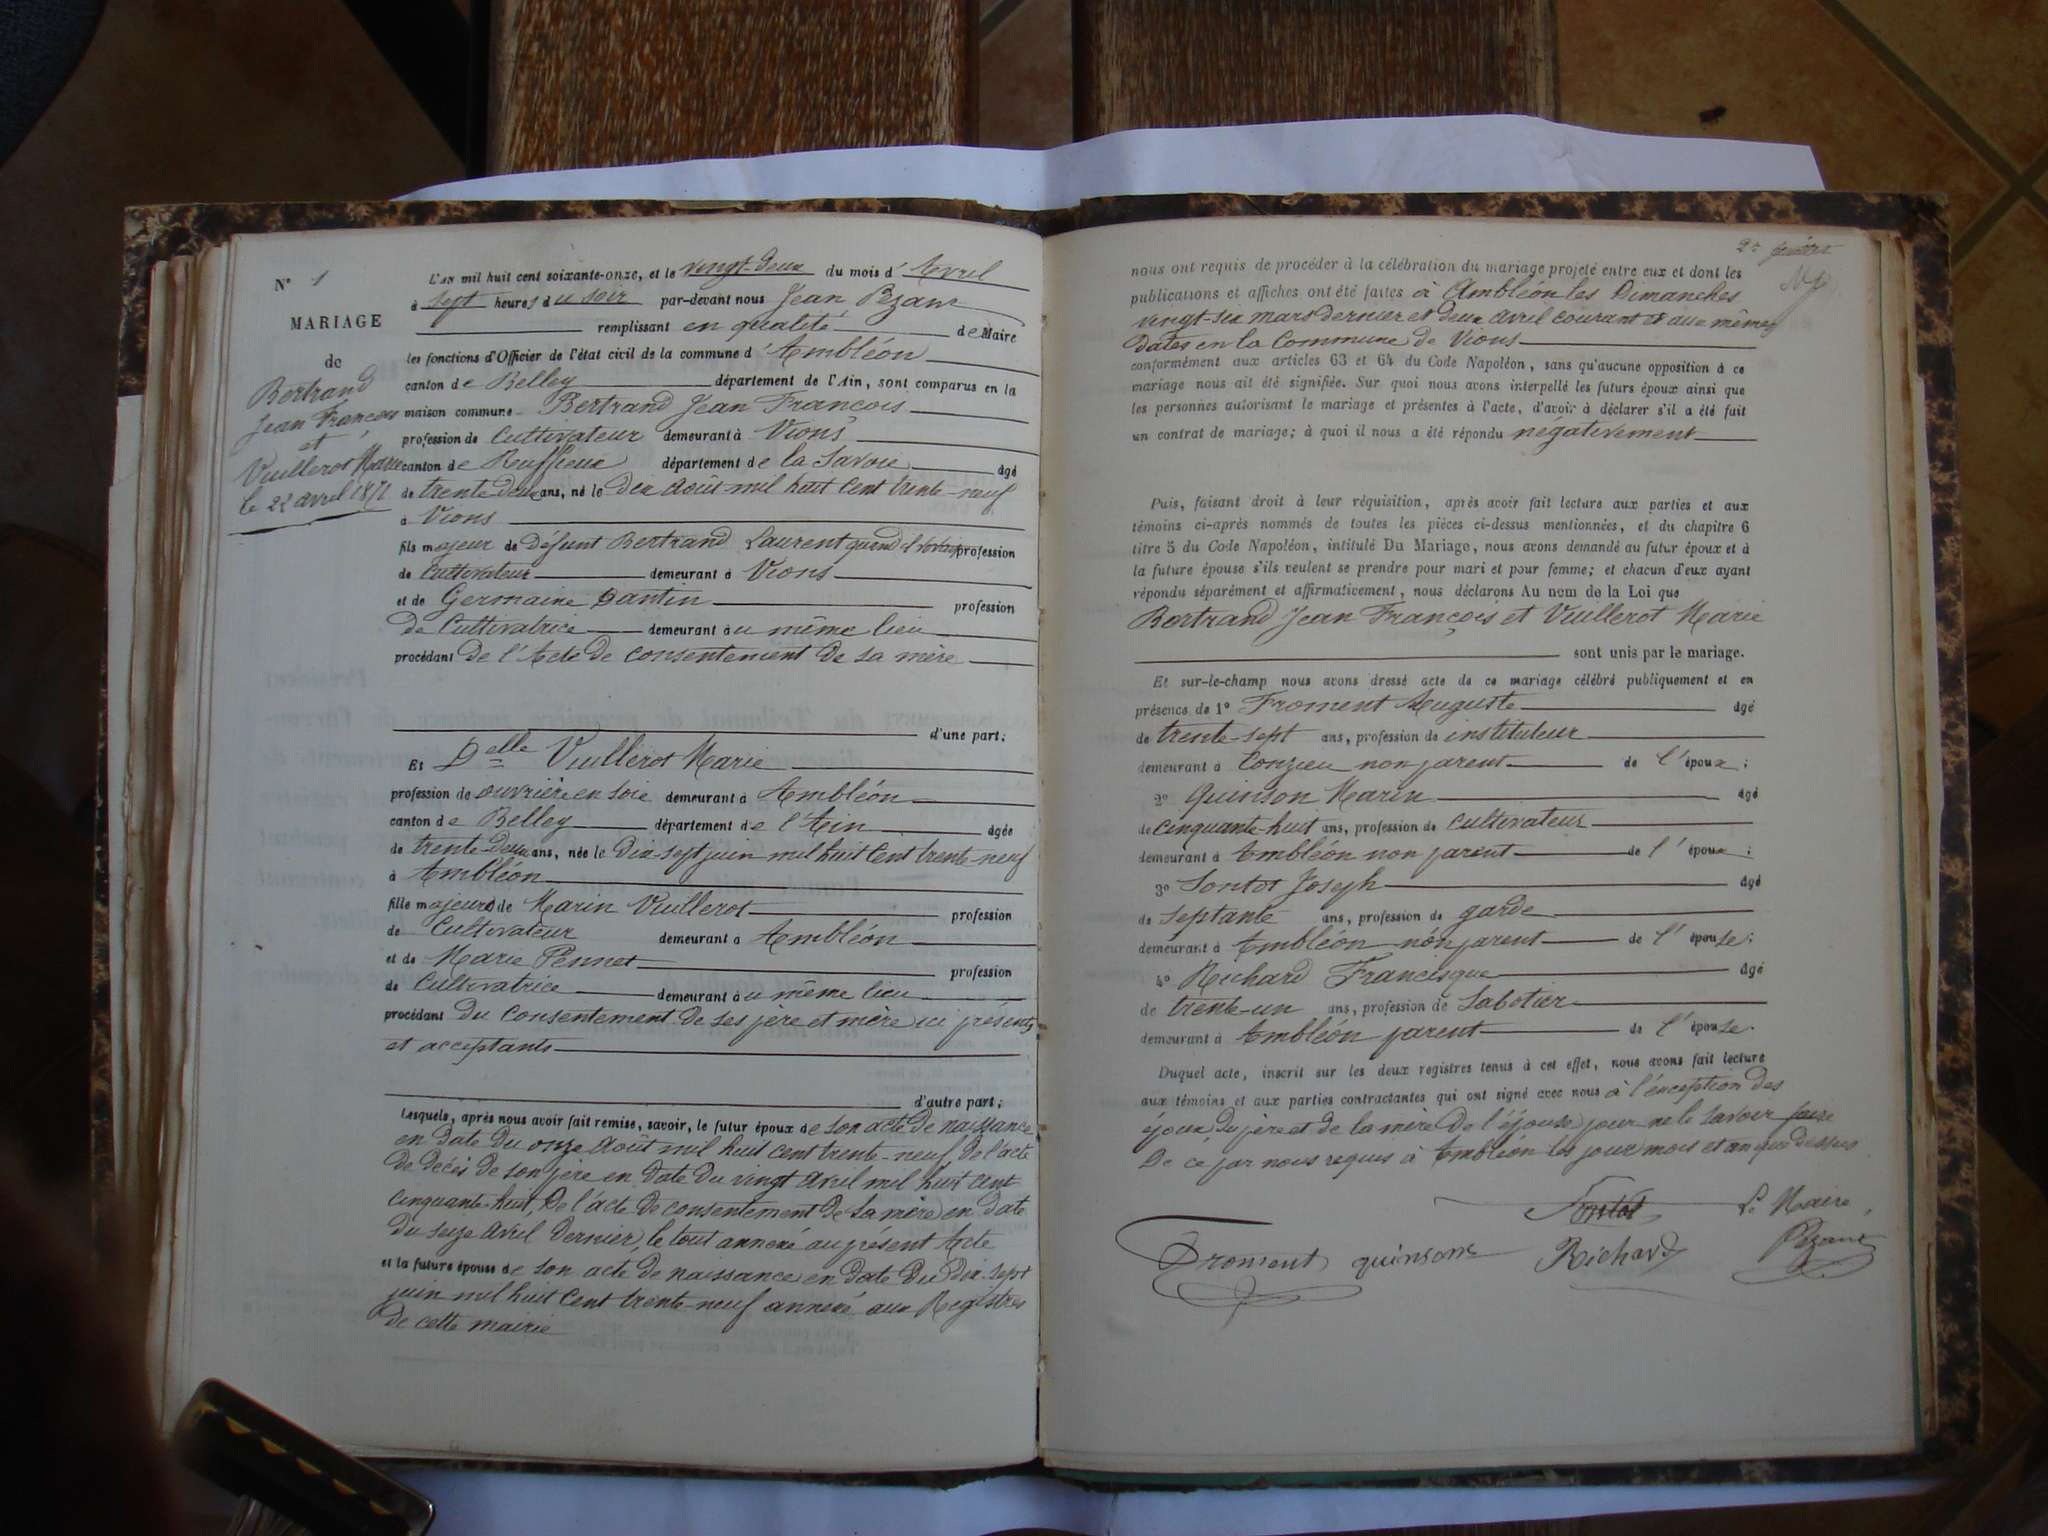 N° 1
MARIAGE
de
Bertrand
Jean François
et
Vuillerot Marie
le 22 avril 1871
L'an mil huit cent soixante-onze, et le vingt-deux du mois d'Avril
à sept heures du soir par-devant nous Jean Pezant
remplissant en qualité de Maire
les fonctions d'Officier de l'état civil de la commune d'Ambléon
canton de Belley département de l'Ain, sont comparus en la
maison commune Bertrand Jean François
profession de Cultivateur demeurant à Vions
canton de Ruffieux département de la Savoie âgé
de trente-deux ans, né le dix Août mil huit cent trente-neuf
à Vions
fils majeur de Défunt Bertrand Laurent quand il vivait profession
de Cultivateur demeurant à Vions
et de Germaine Dantin profession
de Cultivatrice demeurant au même lieu
procédant de l'Acte de consentement de sa mère
d'une part;
Et Delle Vuillerot Marie
profession de ouvrière en soie demeurant à Ambléon
canton de Belley département de l'Ain âgée
de trente-deux ans, née le Dix-sept juin mil huit cent trente-neuf
à Ambléon
fille majeure de Marin Vuillerot profession
de Cultivateur demeurant à Ambléon
et de Marie Pennet profession
de Cultivatrice demeurant au même lieu
procédant du consentement de ses père et mère ici présents
et acceptants
d'autre part;
Lesquels, après nous avoir fait remise, savoir, le futur époux de son acte de naissance
en date du onze Août mil huit cent trente-neuf de l'acte
de décès de son père en date du vingt avril mil huit cent
cinquante-huit, de l'acte de consentement de sa mère en date
du seize avril dernier, le tout annexé au présent Acte
et la future épouse de son acte de naissance en date du dix-sept
juin mil huit cent trente-neuf annexé aux Registres
de cette mairie
2e
nous ont requis de procéder à la célébration du mariage projeté entre eux et dont les
publications et affiches ont été faites à Ambléon les Dimanches
vingt-six mars dernier et deux avril courant et aux mêmes
dates en la Commune de Vions
conformément aux articles 63 et 64 du Code Napoléon, sans qu'aucune opposition à ce
mariage nous ait été signifiée. Sur quoi nous avons interpellé les futurs époux ainsi que
les personnes autorisant le mariage et présentes à l'acte, d'avoir à déclarer s'il a été fait
un contrat de mariage; à quoi il nous a été répondu négativement
Puis, faisant droit à leur réquisition, après avoir fait lecture aux parties et aux
témoins ci-après nommés de toutes les pièces ci-dessus mentionnées, et du chapitre 6
titre 5 du Code Napoléon, intitulé Du Mariage, nous avons demandé au futur époux et à
la future épouse s'ils veulent se prendre pour mari et pour femme; et chacun d'eux ayant
répondu séparément et affirmativement, nous déclarons Au nom de la Loi que
Bertrand Jean François et Vuillerot Marie
sont unis par le mariage.
Et sur-le-champ nous avons dressé acte de ce mariage célébré publiquement et en
présence de 1° Froment Auguste âgé
de trente-sept ans, profession de instituteur
demeurant à Conzieu non parent de l'époux;
2° Quinson Marin âgé
de cinquante-huit ans, profession de Cultivateur
demeurant à Ambléon non parent de l'époux;
3° Sontot Joseph âgé
de septante ans, profession de garde
demeurant à Ambléon non parent de l'épouse;
4° Richard Francisque âgé
de trente-un ans, profession de Sabotier
demeurant à Ambléon parent de l'épouse.
Duquel acte, inscrit sur les deux registres tenus à cet effet, nous avons fait lecture
aux témoins et aux parties contractantes qui ont signé avec nous à l'exception des
époux du père et de la mère de l'épouse pour ne le savoir faire
De ce par nous requis à Ambléon les jour mois et an que dessus
Sontot Le Maire,
Froment quinsont Richard Pezant